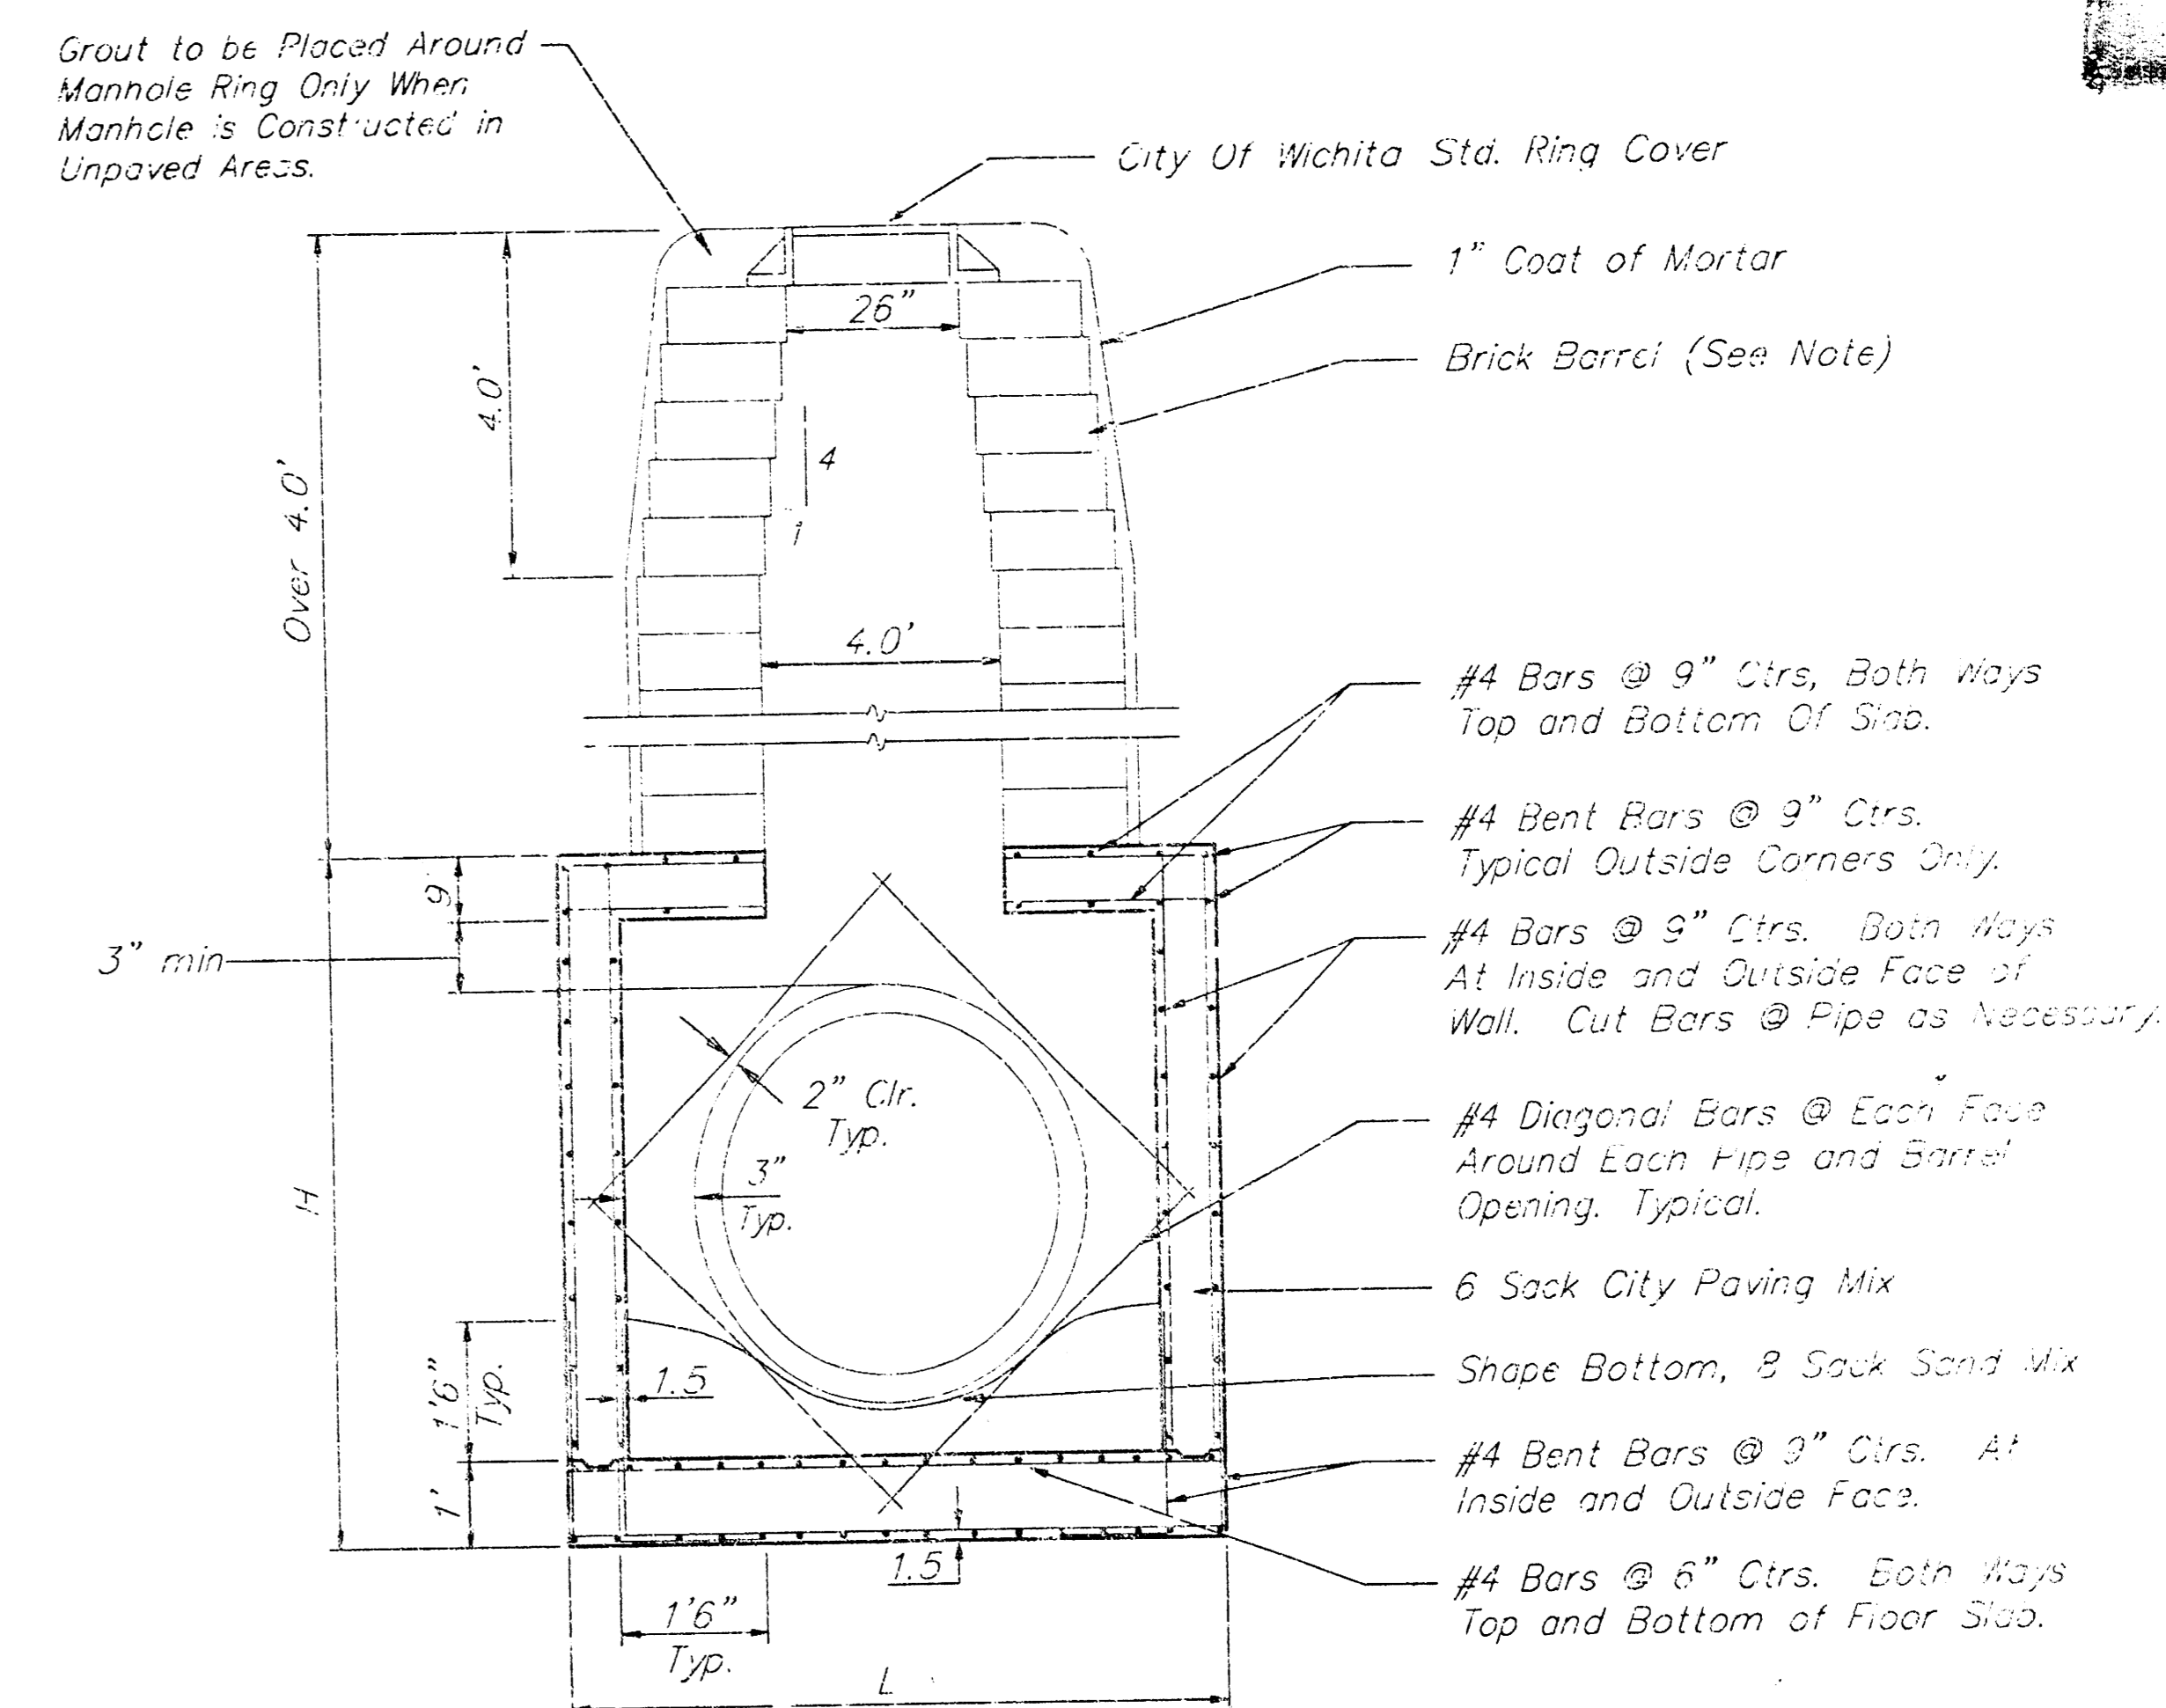 Grout to be Placed Around
Manhole Ring Only When
Manhole is Constructed in
Unpaved Areas.
City Of Wichita Std. Ring Cover
1" Coat of Mortar
26"
Brick Barrel (See Note)
4.0'
4
1
Over 4.0'
4.0'
#4 Bars @ 9" Ctrs, Both Ways
Top and Bottom Of Slab.
#4 Bent Bars @ 9" Ctrs.
Typical Outside Corners Only.
9"
3" min
#4 Bars @ 9" Ctrs. Both Ways
At Inside and Outside Face of
Wall. Cut Bars @ Pipe as Necessary.
2" Clr.
Typ.
#4 Diagonal Bars @ Each Face
Around Each Pipe and Barrel
Opening. Typical.
3"
Typ.
H
6 Sack City Paving Mix
Shape Bottom, 8 Sack Sand Mix
1'6"
Typ.
1.5
#4 Bent Bars @ 9" Ctrs. At
Inside and Outside Face.
1'
1.5
#4 Bars @ 6" Ctrs. Both Ways
Top and Bottom of Floor Slab.
1'6"
Typ.
L